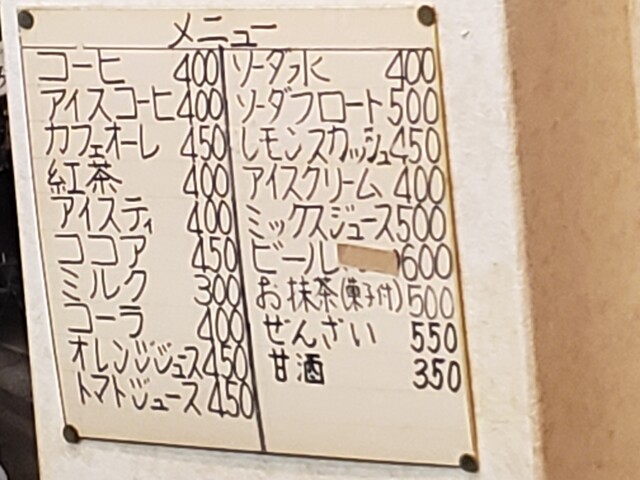 メニュー
コーヒ 400
アイスコーヒ 400
カフェオーレ 450
紅茶 400
アイスティ 400
ココア 450
ミルク 300
コーラ 400
オレンジジュース 450
トマトジュース 450
ソーダ水 400
ソーダフロート 500
レモンスカッシュ 450
アイスクリーム 400
ミックスジュース 500
ビール 600
お抹茶(菓子付) 500
ぜんざい 550
甘酒 350